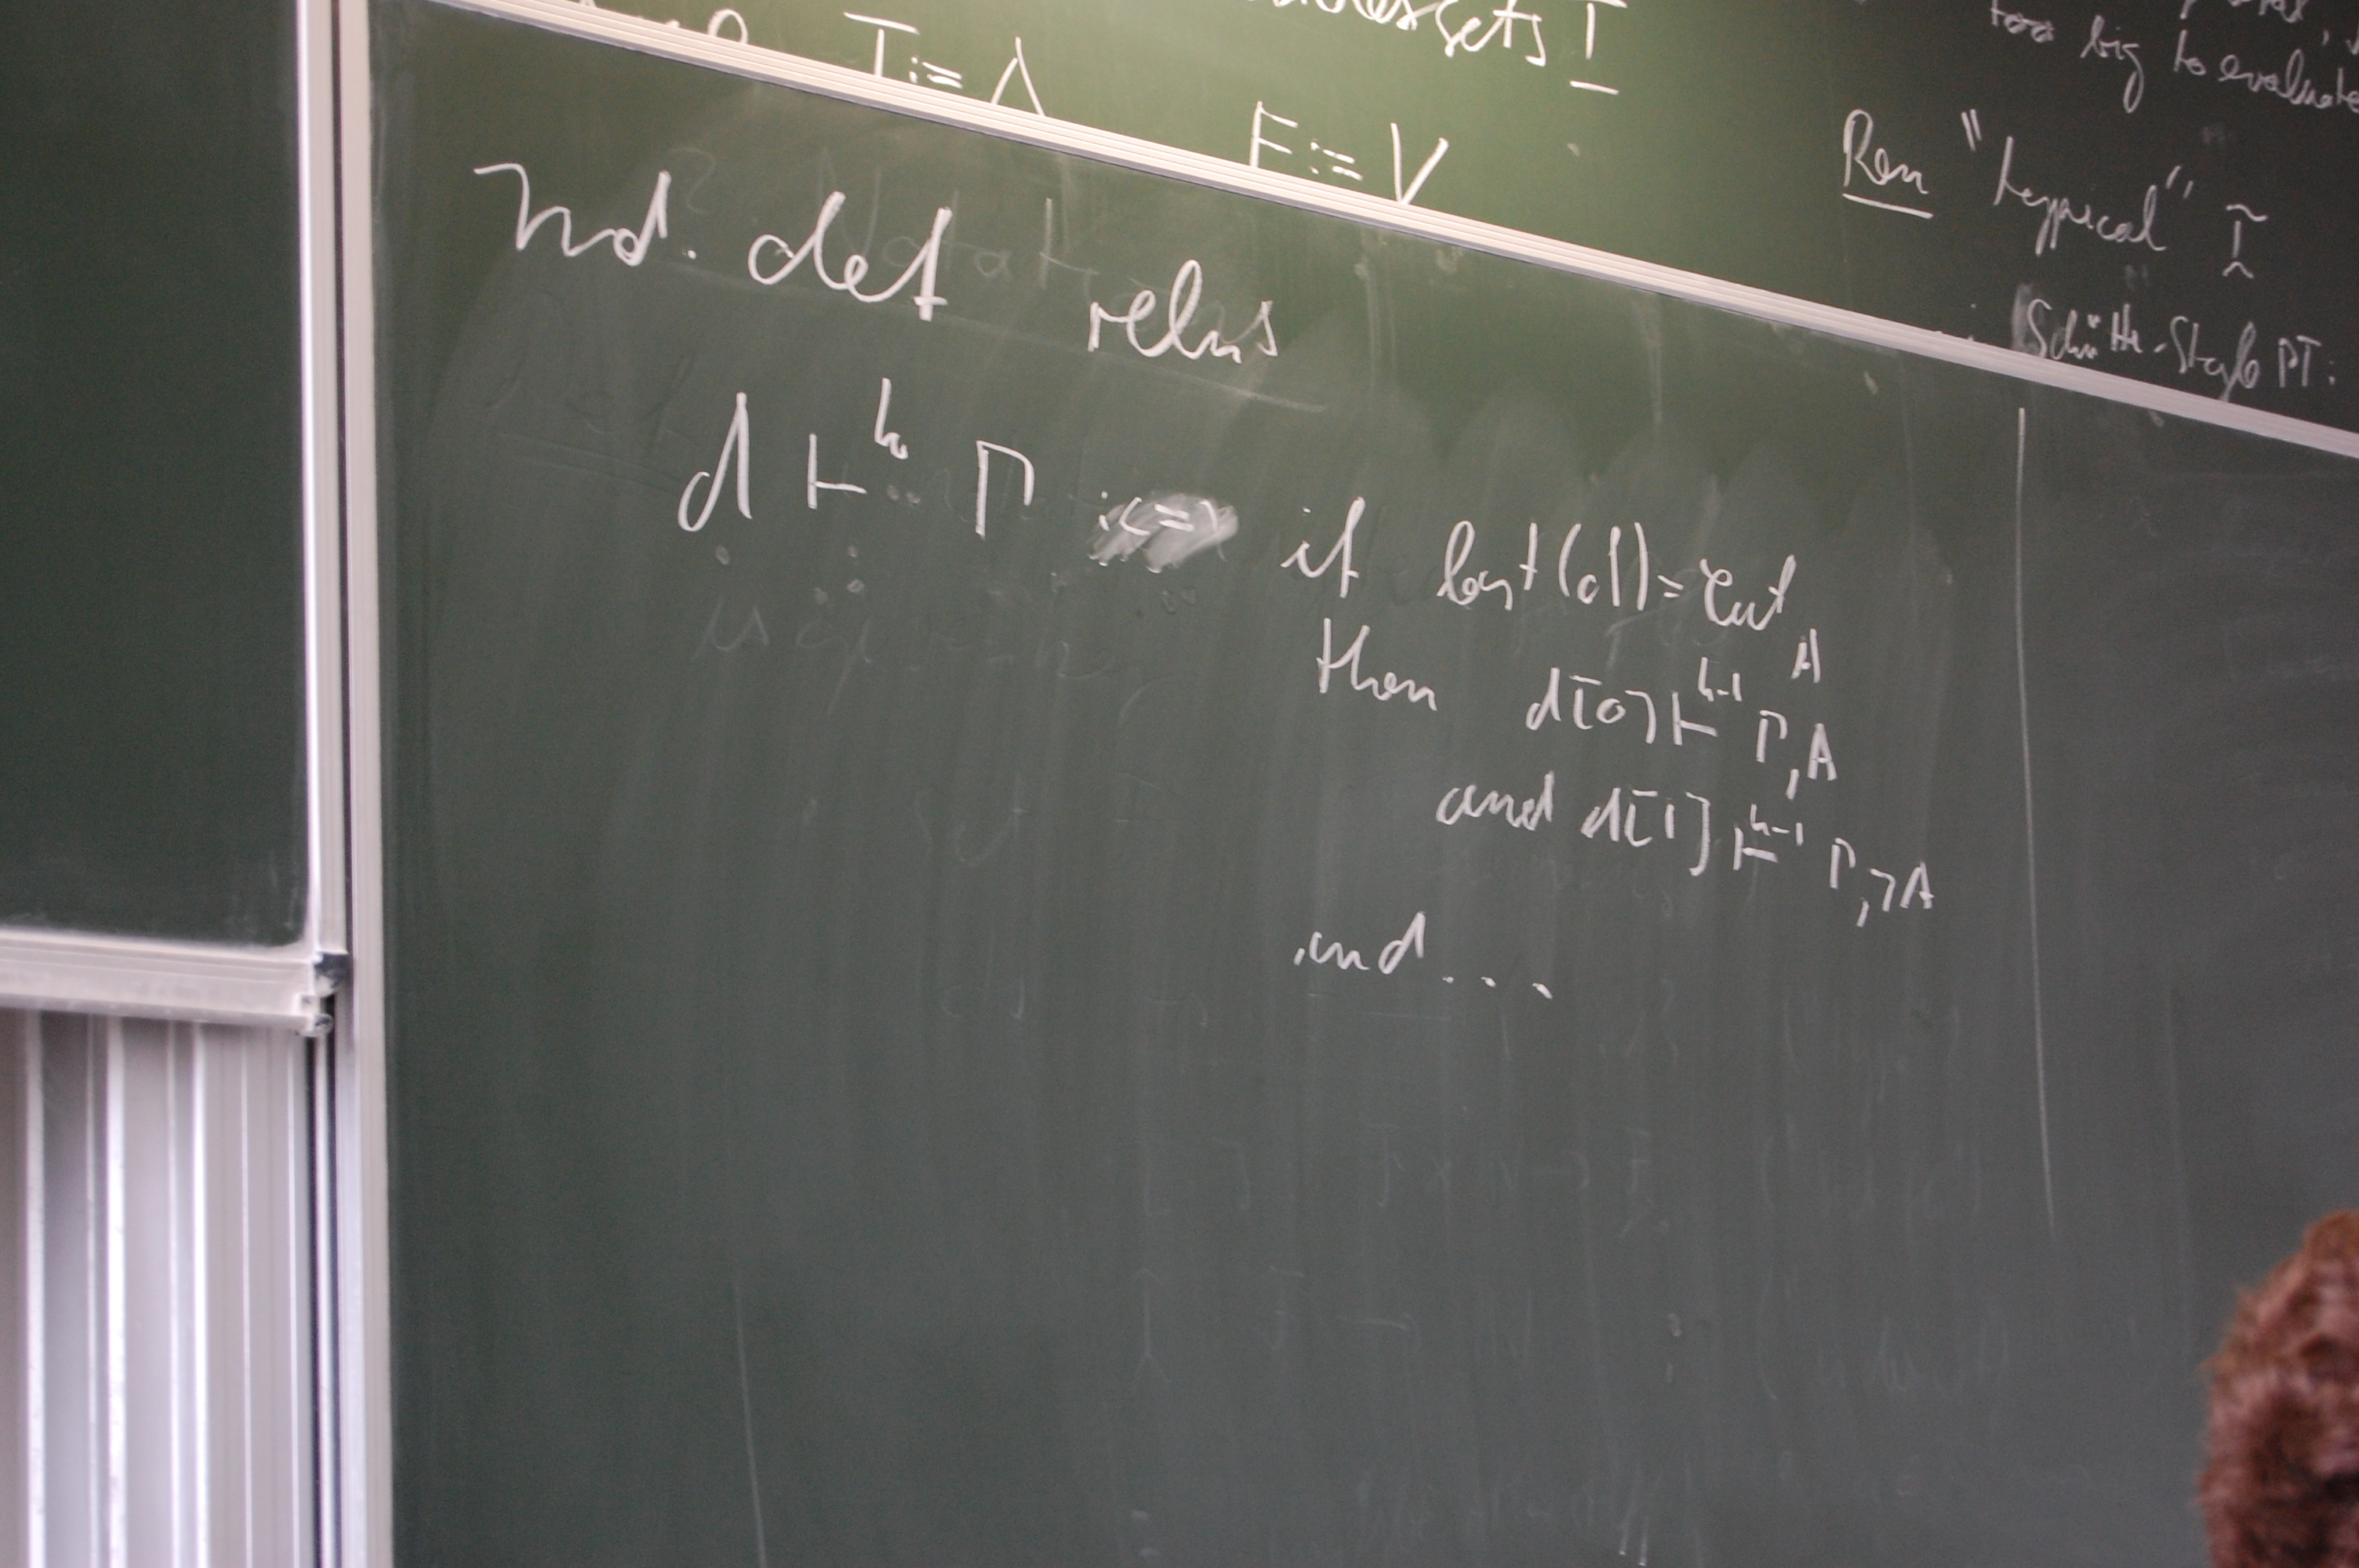 sets I
T := Λ
F := V
too big to evaluate
Rem "typical" I
Schütte-Style PT:
Ind. def relns
d ⊢ʰ Γ :<=> if last(d) = Cut_A
then d[0] ⊢ʰ⁻¹ Γ, A
and d[1] ⊢ʰ⁻¹ Γ, ¬A
and ...